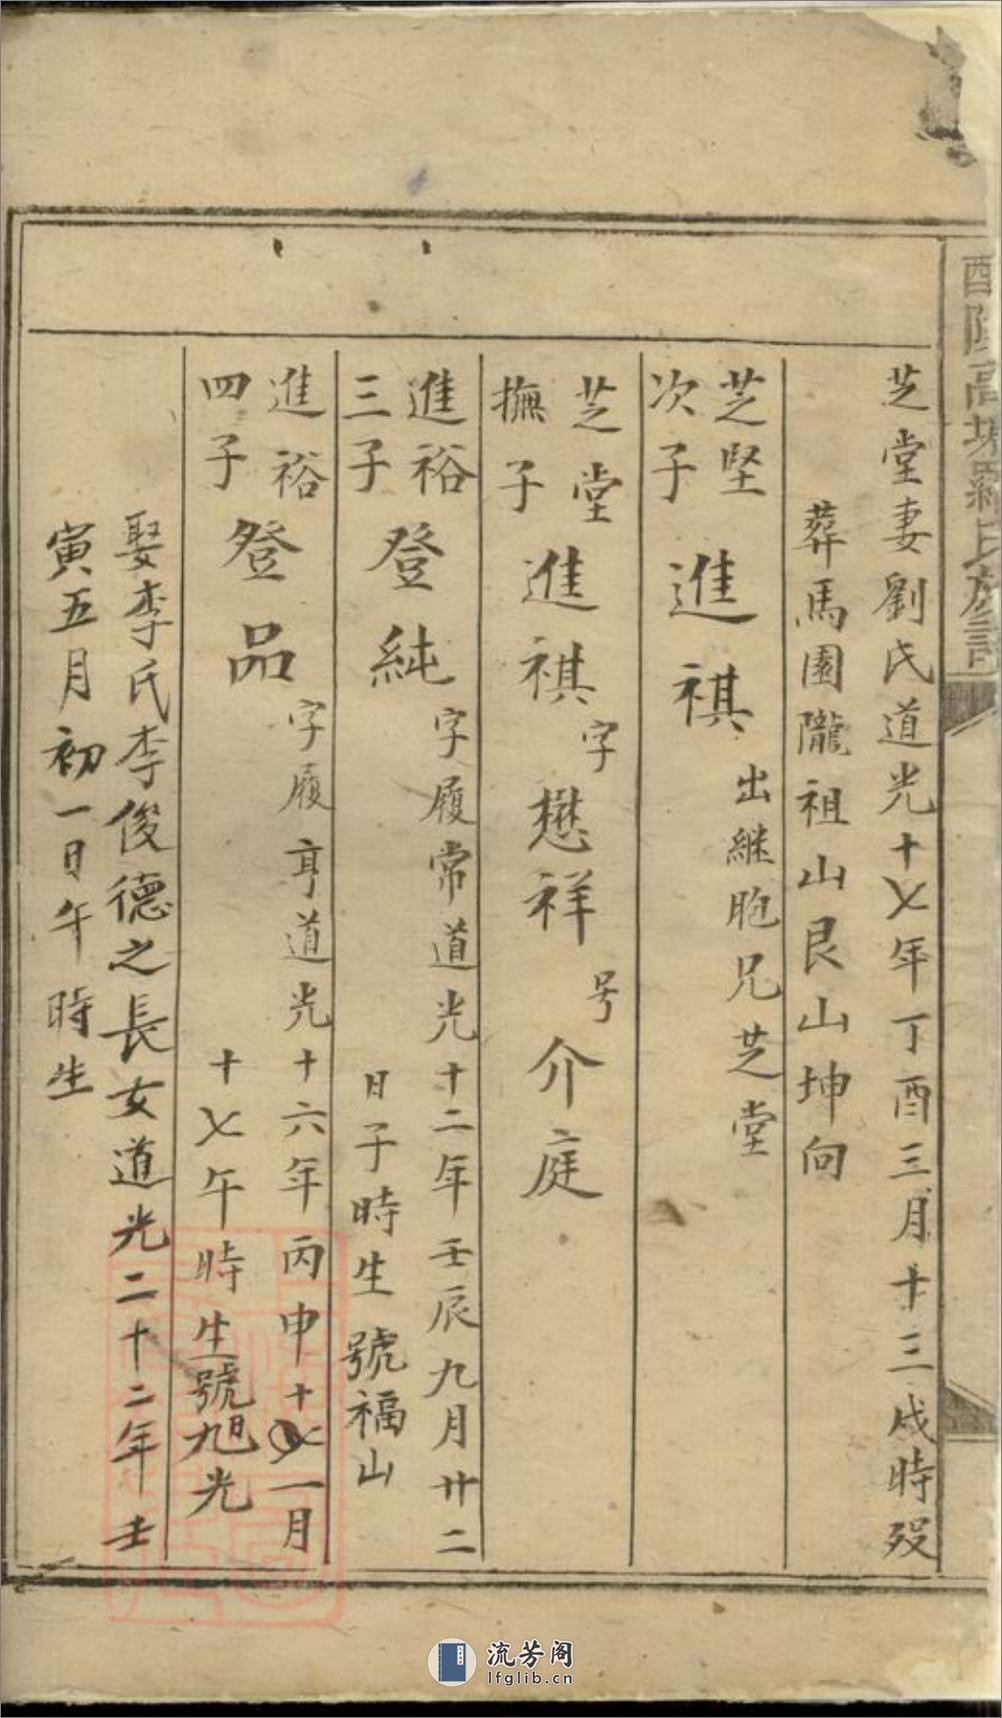 芝堂妻劉氏道光十七年丁酉三月十三戌時殁
葬馬園隴祖山艮山坤向
芝堅
次子
進祺
出繼胞兄芝堂
芝堂
撫子
進祺
字
懋祥
号
介庭
進裕
三子
登純
字履常道光十二年壬辰九月廿二
日子時生號福山
進裕
四子
登品
字履亨道光十六年丙申十一月
十七午時生號旭光
娶李氏李俊德之長女道光二十二年壬
寅五月初一日午時生
流芳阁
lfglib.cn